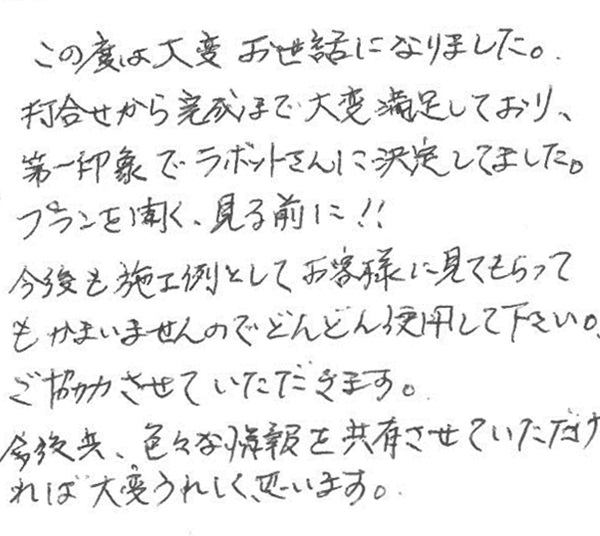 この度は大変お世話になりました。
打合せから完成まで大変満足しており、
第一印象でラボットさんに決定してました。
プランを聞く、見る前に!!
今後も施工例としてお客様に見てもらって
もかまいませんのでどんどん使用して下さい。
ご協力させていただきます。
今後共、色々な情報を共有させていただけ
れば大変うれしく思います。